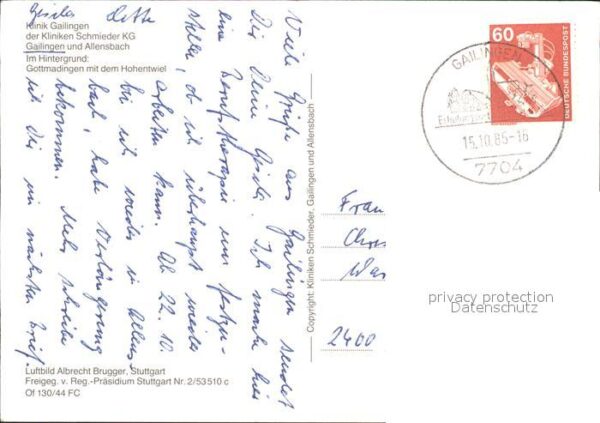 Klinik Gailingen
der Kliniken Schmieder KG
Gailingen und Allensbach
Im Hintergrund:
Gottmadingen mit dem Hohentwiel
Viele Grüße aus Gailingen sendet
Dir Deine Gisela. Ich mache hier
eine Berufstherapie um festzu-
stellen, ob ich überhaupt wieder
arbeiten kann. Ab 22.10.
bin ich wieder in Allens-
bach, habe Verlängerung
bekommen. Mehr schreibe
ich Dir im nächsten Brief.
Gisela
Copyright: Kliniken Schmieder, Gailingen und Allensbach
Luftbild Albrecht Brugger, Stuttgart
Freigeg. v. Reg.-Präsidium Stuttgart Nr. 2/53510 c
Of 130/44 FC
60
DEUTSCHE BUNDESPOST
GAILINGEN
15.10.85-16
7704
Frau
2400
privacy protection
Datenschutz